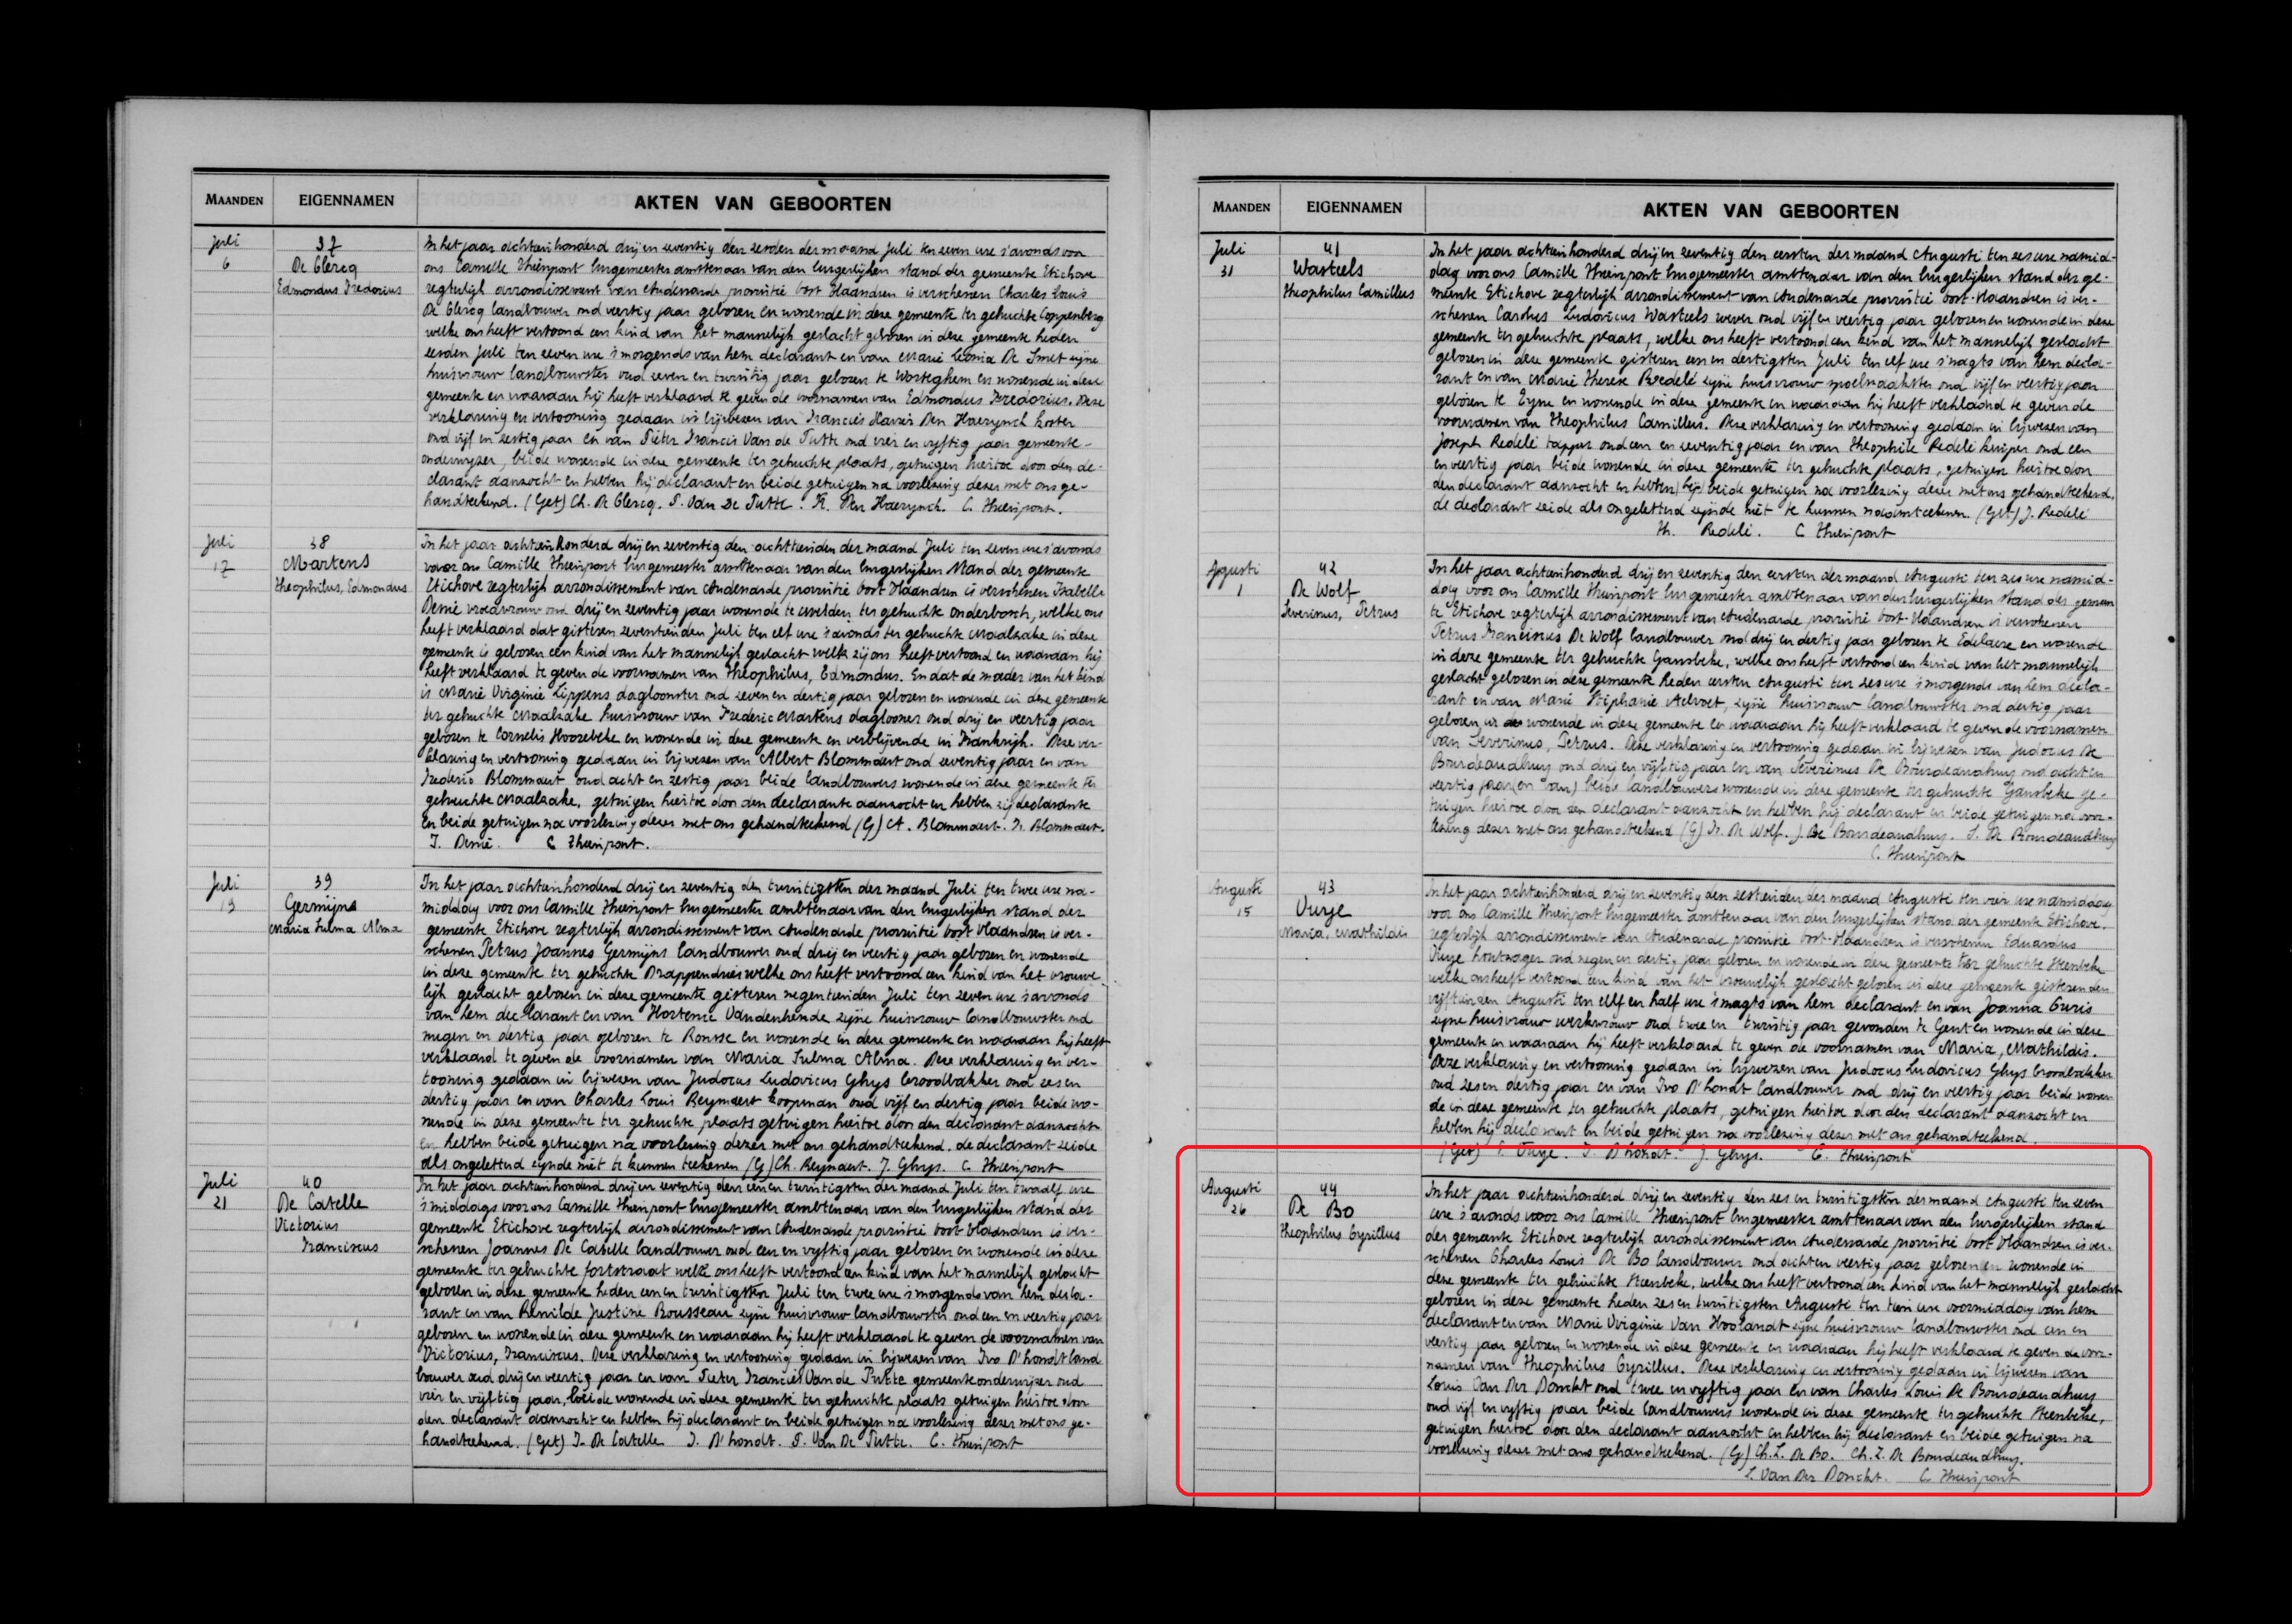 MAANDEN EIGENNAMEN AKTEN VAN GEBOORTEN
Juli 37 In het jaar achttienhonderd drij en zeventig den zesden der maand Juli ten zeven ure s'avonds voor
6 De Clercq ons Camille Thienpont burgemeester ambtenaar van den burgerlijken stand der gemeente Etichove
Edmondus Fredorius regterlijk arrondissement van Audenarde provintie Oost Vlaandren is verschenen Charles Louis
De Clercq landbouwer oud veertig jaar geboren en wonende in deze gemeente ter gehuchte Coppenberg
welke ons heeft vertoond een kind van het mannelijk geslacht geboren in deze gemeente heden
zesden Juli ten zeven ure s'morgends van hem declarant en van Marie Leonia De Smet zijne
huisvrouw landbouwster oud zeven en twintig jaar geboren te Worteghem en wonende in deze
gemeente en waaraan hij heeft verklaard te geven de voornamen van Edmondus Fredorius. Deze
verklaring en vertooning gedaan in bijwezen van Francies Xavier Den Haerynck koster
oud vijf en zestig jaar en van Pieter Francis Van de Putte oud vier en vyftig jaar gemeente-
onderwyzer, beide wonende in deze gemeente ter gehuchte plaats, getuigen hiertoe door den de-
clarant aanzocht en hebben hij declarant en beide getuigen na voorlezing dezer met ons ge-
handteekend. (Get) Ch. De Clercq. P. Van De Putte. F. Den Haerynck. C. Thienpont.
Juli 38 In het jaar achttienhonderd drij en zeventig den achttienden der maand Juli ten zeven ure s'avonds
17 Martens voor ons Camille Thienpont burgemeester ambtenaar van den burgerlijken stand der gemeente
Theophilus, Edmondus Etichove regterlijk arrondissement van Audenarde provintie Oost Vlaandren is verschenen Isabella
vroedvrouw oud drij en zeventig jaar wonende te Melden ter gehuchte onderbosch, welke ons
heeft verklaard dat gisteren zeventienden Juli ten elf ure s'avonds ter gehuchte Maalzake in deze
gemeente is geboren een kind van het mannelijk geslacht welk zij ons heeft vertoond en waaraan hij
heeft verklaard te geven de voornamen van Theophilus, Edmondus. En dat de moeder van het kind
is Marie Virginie Lippens dagloonster oud zeven en dertig jaar geboren en wonende in deze gemeente
ter gehuchte Maalzake huisvrouw van Frederic Martens daglooner oud drij en veertig jaar
geboren te Cornelis Hoorebeke en wonende in deze gemeente en verblijvende in Frankrijk. Deze ver-
klaring en vertooning gedaan in bijwezen van Albert Blommaert oud zeventig jaar en van
Frederic Blommaert oud acht en zestig jaar beide landbouwers wonende in deze gemeente ter
gehuchte Maalzake, getuigen hiertoe door den declarante aanzocht en hebben zij declarante
en beide getuigen na voorlezing dezer met ons gehandteekend (G) A. Blommaert. Fr. Blommaert.
C Thienpont.
Juli 39 In het jaar achttienhonderd drij en zeventig den twintigsten der maand Juli ten twee ure na-
19 Germijns middag voor ons Camille Thienpont burgemeester ambtenaar van den burgerlijken stand der
Maria Sulma Alma gemeente Etichove regterlijk arrondissement van Audenarde provintie Oost Vlaandren is ver-
schenen Petrus Joannes Germijns landbouwer oud drij en veertig jaar geboren en wonende
in deze gemeente ter gehuchte Drappendries welke ons heeft vertoond een kind van het vrouwe
lijk geslacht geboren in deze gemeente gisteren negentienden Juli ten zeven ure s'avonds
van hem declarant en van Hortense Vandenhende zijne huisvrouw landbouwster oud
negen en dertig jaar geboren te Ronsse en wonende in deze gemeente en waaraan hij heeft
verklaard te geven de voornamen van Maria Sulma Alma. Deze verklaring en ver-
tooning gedaan in bijwezen van Judocus Ludovicus Ghys broodbakker oud zes en
dertig jaar en van Charles Louis Reynaert koopman oud vijf en dertig jaar beide wo-
nende in deze gemeente ter gehuchte plaats getuigen hiertoe door den declarant aanzocht
en hebben beide getuigen na voorlezing dezer met ons gehandteekend. de declarant zeide
als ongeletterd zijnde niet te kunnen teekenen (G) Ch. Reynaert. J. Ghys. C. Thienpont
Juli 40 In het jaar achttienhonderd drij en zeventig den een en twintigsten der maand Juli ten twaalf ure
21 De Catelle s'middags voor ons Camille Thienpont burgemeester ambtenaar van den burgerlijken stand der
Victorius gemeente Etichove regterlijk arrondissement van Audenarde provintie Oost Vlaandren is ver-
Franciscus schenen Joannes De Catelle landbouwer oud een en vyftig jaar geboren en wonende in deze
gemeente ter gehuchte fortstraat welke ons heeft vertoond een kind van het mannelijk geslacht
geboren in deze gemeente heden een en twintigsten Juli ten twee ure s'morgends van hem decla-
rant en van Renilde Justine Rousseau zijne huisvrouw landbouwster oud een en veertig jaar
geboren en wonende in deze gemeente en waaraan hij heeft verklaard te geven de voornamen van
Victorius, Franciscus. Deze verklaring en vertooning gedaan in bijwezen van Ivo D'hondt land
bouwer oud drij en veertig jaar en van Pieter Francies Van de Putte gemeente onderwijzer oud
vier en vijftig jaar, beide wonende in deze gemeente ter gehuchte plaats getuigen hiertoe door
den declarant aanzocht en hebben hij declarant en beide getuigen na voorlezing dezer met ons ge-
handteekend. (Get) J. De Catelle J. D'hondt. P. Van De Putte. C. Thienpont
MAANDEN EIGENNAMEN AKTEN VAN GEBOORTEN
Juli 41 In het jaar achttienhonderd drij en zeventig den eersten der maand Augusti ten zes ure namid-
31 Wasteels dag voor ons Camille Thienpont burgemeester ambtenaar van den burgerlijken stand der ge-
Theophilus Camillus meente Etichove regterlijk arrondissement van Audenarde provintie Oost-Vlaandren is ver-
schenen Carolus Ludovicus Wasteels wever oud vijf en veertig jaar geboren en wonende in deze
gemeente ter gehuchte plaats, welke ons heeft vertoond een kind van het mannelijk geslacht
geboren in deze gemeente gisteren een en dertigsten Juli ten elf ure s'nagts van hem decla-
rant en van Marie Therese Bredelé zijne huisvrouw oud vijf en veertig jaar
geboren te Eyne en wonende in deze gemeente en waaraan hij heeft verklaard te geven de
voornamen van Theophilus Camillus. Deze verklaring en vertooning gedaan in bijwezen van
Joseph Redelé tapper oud een en zeventig jaar en van Theophile Redelé kuiper oud een
en veertig jaar beide wonende in deze gemeente ter gehuchte plaats, getuigen hiertoe door
den declarant aanzocht en hebben (hij) beide getuigen na voorlezing dezer met ons gehandteekend.
de declarant zeide als ongeletterd zijnde niet te kunnen naamteekenen. (Get) J. Redelé
Th. Redelé. C Thienpont
Augusti 42 In het jaar achttienhonderd drij en zeventig den eersten der maand Augusti ten zes ure namid-
1 De Wolf dag voor ons Camille Thienpont burgemeester ambtenaar van den burgerlijken stand der gemeen
Severinus, Petrus te Etichove regterlijk arrondissement van Audenarde provintie Oost-Vlaandren is verschenen
Petrus Franciscus De Wolf landbouwer oud drij en dertig jaar geboren te Edelaere en wonende
in deze gemeente ter gehuchte Gansbeke, welke ons heeft vertoond een kind van het mannelijk
geslacht geboren in deze gemeente heden eersten Augusti ten zes ure s'morgends van hem decla-
rant en van Marie Stephanie Aelvoet, zijne huisvrouw landbouwster oud dertig jaar
geboren en wonende in deze gemeente en waaraan hij heeft verklaard te geven de voornamen
van Severinus, Petrus. Deze verklaring en vertooning gedaan in bijwezen van Judocus De
Bourdeaudhuy oud drij en vijftig jaar en van Severinus De Bourdeaudhuy oud acht en
veertig jaar (en van) beide landbouwers wonende in deze gemeente ter gehuchte Gansbeke ge-
tuigen hiertoe door den declarant aanzocht en hebben hij declarant en beide getuigen na voor-
lezing dezer met ons gehandteekend (G) Fr. De Wolf. J. De Bourdeaudhuy. S. De Bourdeaudhuy
C. Thienpont
Augusti 43 In het jaar achttienhonderd drij en zeventig den zestienden der maand Augusti ten vier ure namiddag
15 Vurye voor ons Camille Thienpont burgemeester ambtenaar van den burgerlijken stand der gemeente Etichove,
Maria, Mathildis regterlijk arrondissement van Audenarde provintie Oost-Vlaandren is verschenen Eduardus
Vurye houtzager oud negen en dertig jaar geboren en wonende in deze gemeente ter gehuchte Steenbeke
welke ons heeft vertoond een kind van het vrouwelijk geslacht geboren in deze gemeente gisteren den
vijftienden Augusti ten elf en half ure s'nagts van hem declarant en van Joanna Curis
zijne huisvrouw werkvrouw oud twee en twintig jaar gevonden te Gent en wonende in deze
gemeente en waaraan hij heeft verklaard te geven de voornamen van Maria, Mathildis.
Deze verklaring en vertooning gedaan in bijwezen van Judocus Ludovicus Ghys broodbakker
oud zes en dertig jaar en van Ivo D'hondt landbouwer oud drij en veertig jaar beide wonen
de in deze gemeente ter gehuchte plaats, getuigen hiertoe door den declarant aanzocht en
hebben hij declarant en beide getuigen na voorlezing dezer met ons gehandteekend.
(Get) Vurye. D'hondt. J. Ghys. C. Thienpont
Augusti 44 In het jaar achttienhonderd drij en zeventig den zes en twintigsten der maand Augusti ten zeven
26 De Bo ure s'avonds voor ons Camille Thienpont burgemeester ambtenaar van den burgerlijken stand
Theophilus Cyrillus der gemeente Etichove regterlijk arrondissement van Audenarde provintie Oost Vlaandren is ver-
schenen Charles Louis De Bo landbouwer oud acht en veertig jaar geboren en wonende in
deze gemeente ter gehuchte Steenbeke, welke ons heeft vertoond een kind van het mannelijk geslacht
geboren in deze gemeente heden zes en twintigsten Augusti ten tien ure voormiddag van hem
declarant en van Marie Virginie Van Hoolandt zijne huisvrouw landbouwster oud een en
veertig jaar geboren en wonende in deze gemeente en waaraan hij heeft verklaard te geven de voor-
namen van Theophilus Cyrillus. Deze verklaring en vertooning gedaan in bijwezen van
Louis Van Der Donckt oud twee en vyftig jaar en van Charles Louis De Bourdeaudhuy
oud vijf en vyftig jaar beide landbouwers wonende in deze gemeente ter gehuchte Steenbeke,
getuigen hiertoe door den declarant aanzocht en hebben hij declarant en beide getuigen na
voorlezing dezer met ons gehandteekend. (G) Ch. L. De Bo. Ch. L. De Bourdeaudhuy.
L. Van Der Donckt. C. Thienpont